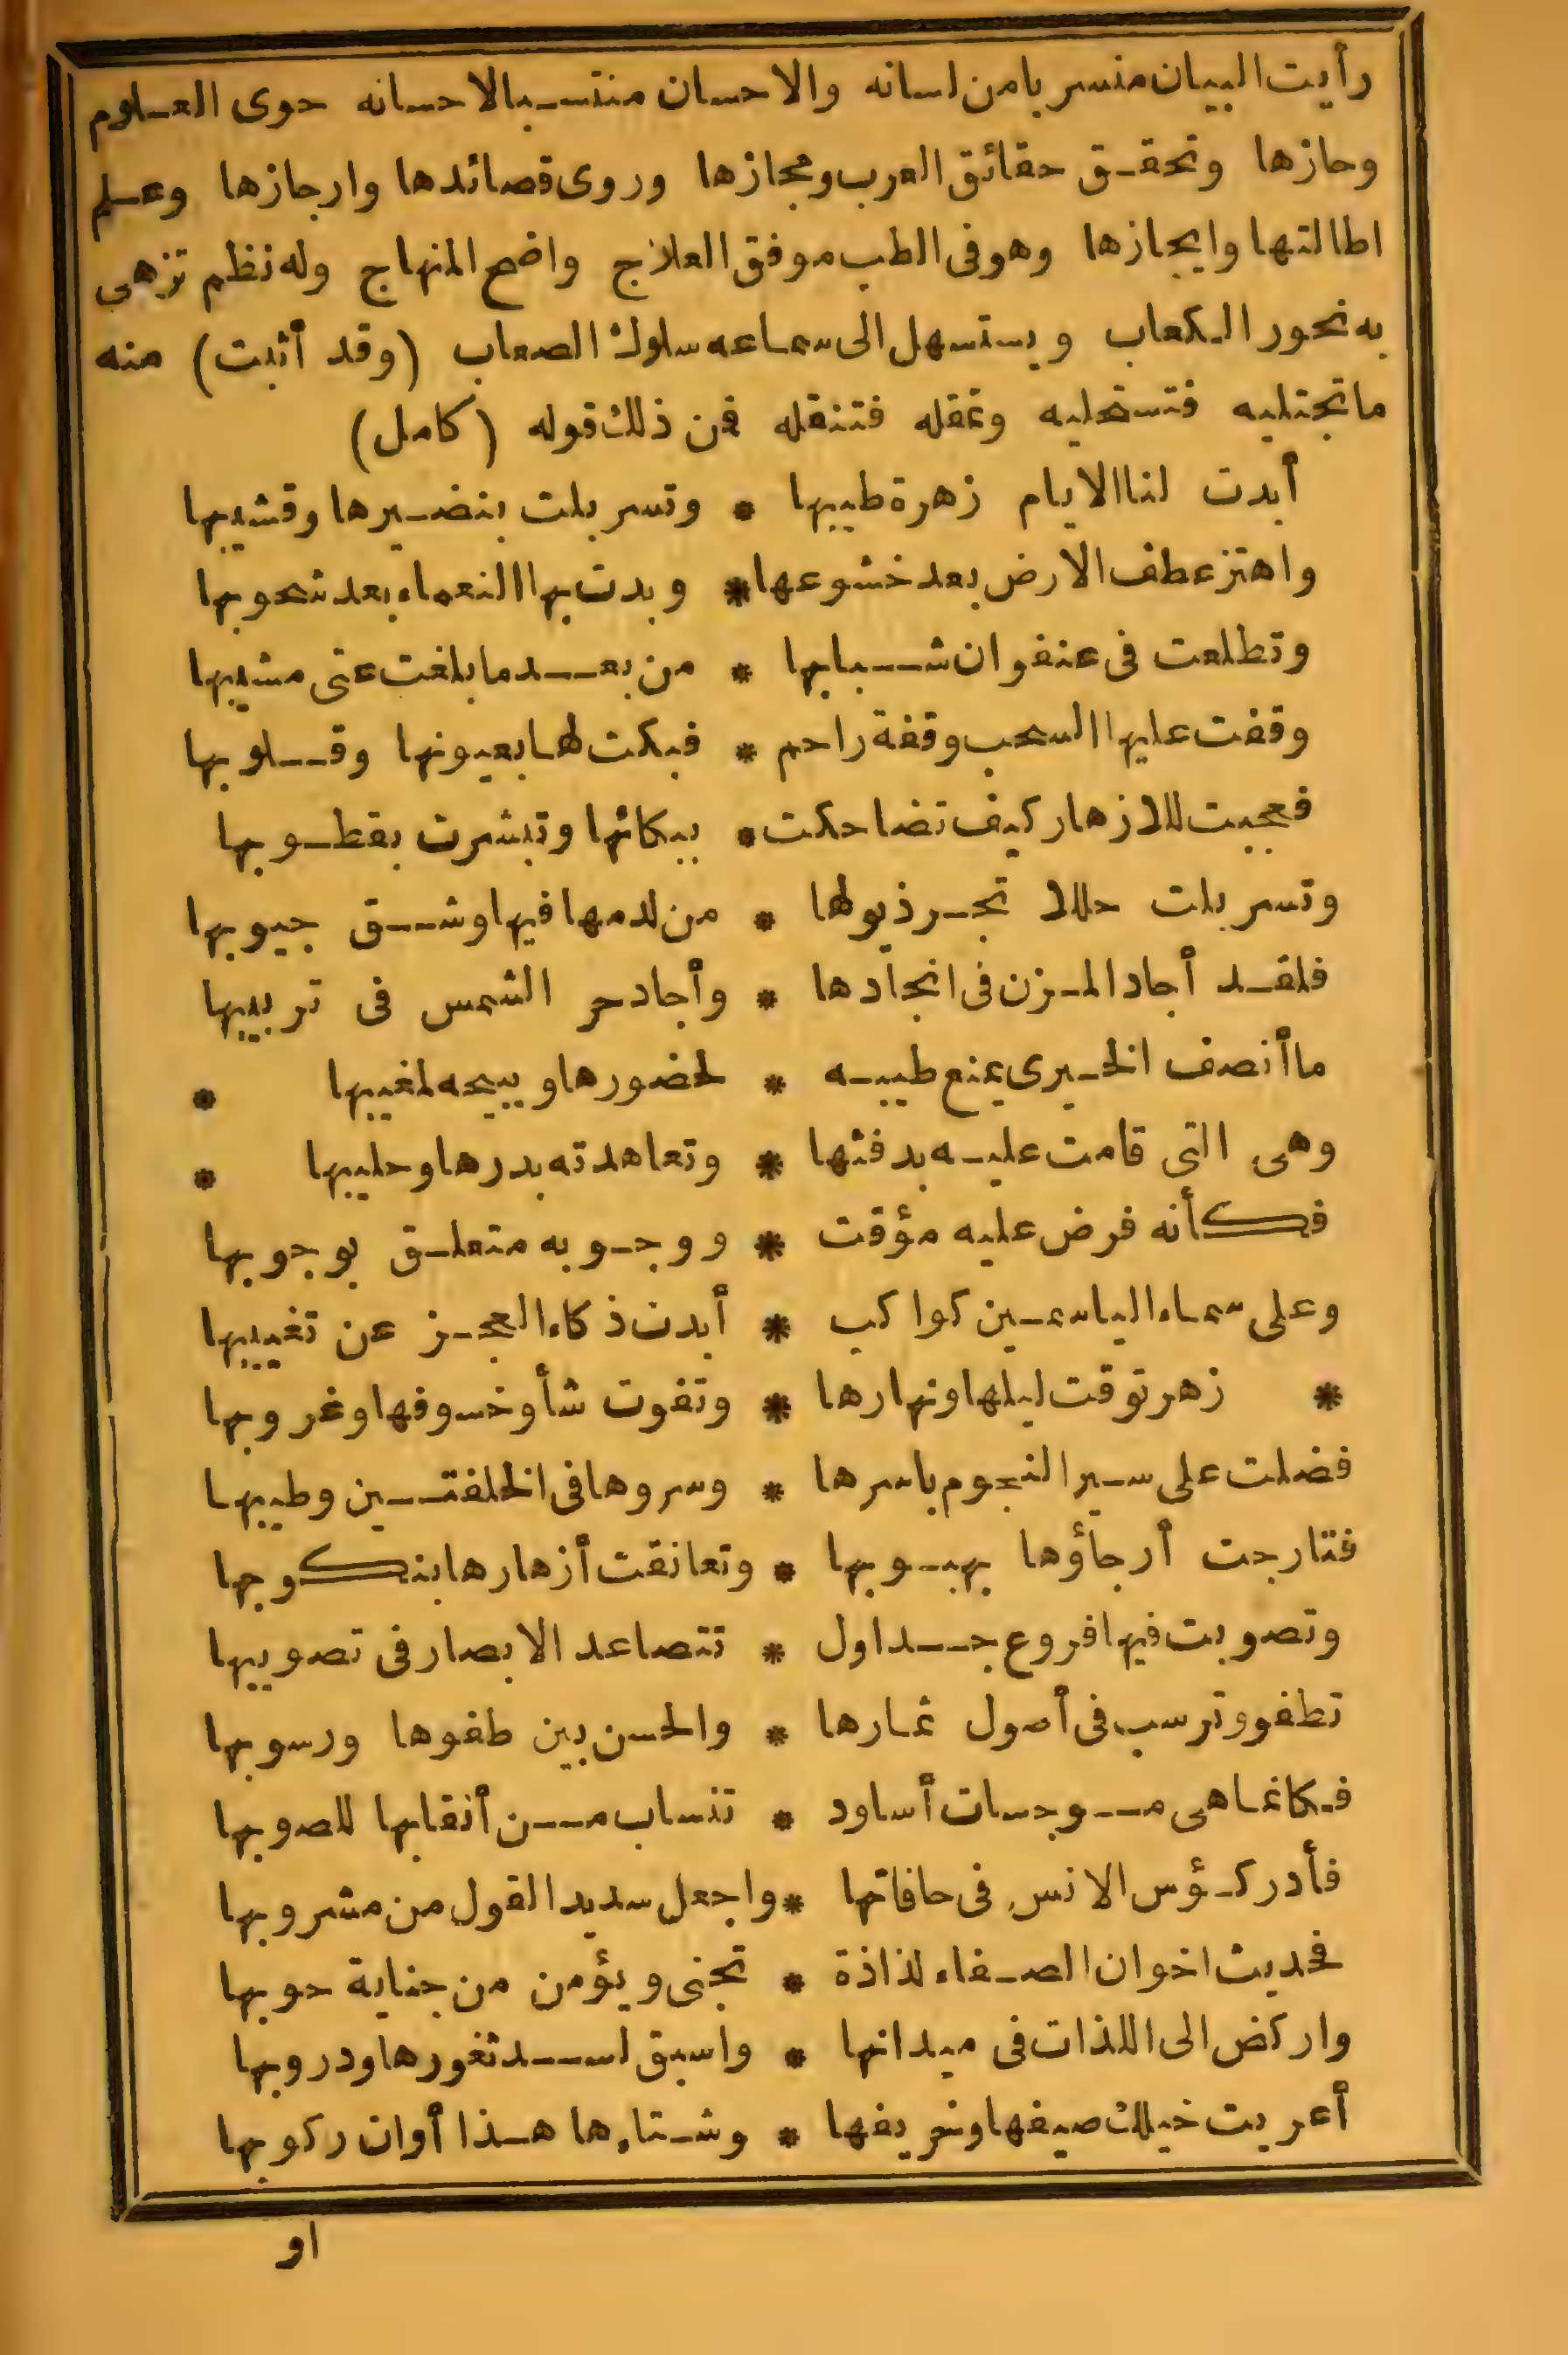 رأيت البيان منسربا من لسانه والاحسان منتسبا لاحسانه حوى العلوم
وحازها وتحقق حقائق العرب ومجازها وروى قصائدها وارجازها وعلم
اطالتها وايجازها وهو فى الطب موفق العلاج واضح المنهاج وله نظم تزهى
به نحور الكعاب ويستسهل الى سماعه سلوك الصعاب (وقد أثبت) منه
ما تجتليه فتستحليه وتمقله فتنقله فمن ذلك قوله (كامل)
أبدت لنا الايام زهرة طيبها * وتسربلت بنضيرها وقشيبها
واهتز عطف الارض بعد خشوعها * وبدت بها النعماء بعد شحوبها
وتطلعت فى عنفوان شبابها * من بعد ما بلغت عتى مشيبها
وقفت عليها السحب وقفة راحم * فبكت لها بعيونها وقلوبها
فعجبت للازهار كيف تضاحكت * ببكائها وتبشرت بقطوبها
وتسربلت حللا تجر ذيولها * من لدمها فيها وشق جيوبها
فلقد أجاد المزن فى انجادها * وأجاد حر الشمس فى تربيبها
ما أنصف الخيرى يمنع طيبه * لحضورها ويبيحه لمغيبها *
وهى التى قامت عليه بدفئها * وتعاهدته بدرها وحليبها *
فكأنه فرض عليه مؤقت * ووجوبه متعلق بوجوبها
وعلى سماء الياسمين كواكب * أبدت ذكاء العجز عن تغييبها
* زهر توقت ليلها ونهارها * وتفوت شأو خسوفها وغروبها
فضلت على سير النجوم باسرها * وسروها فى الخلفتين وطيبها
فتارجت أرجاؤها بهبوبها * وتعانقت أزهارها بنكوبها
وتصوبت فيها فروع جداول * تتصاعد الابصار فى تصويبها
تطفو وترسب فى أصول ثمارها * والحسن بين طفوها ورسوبها
فكانما هى موجسات أساود * تنساب من أنقابها للصوبها
فأدر كؤس الانس فى حافاتها * واجعل سديد القول من مشروبها
فحديث اخوان الصفاء لذاذة * تجنى ويؤمن من جناية حوبها
واركض الى اللذات فى ميدانها * واسبق لسد ثغورها ودروبها
أعريت خيلك صيفها وخريفها * وشتاءها هذا أوان ركوبها
او